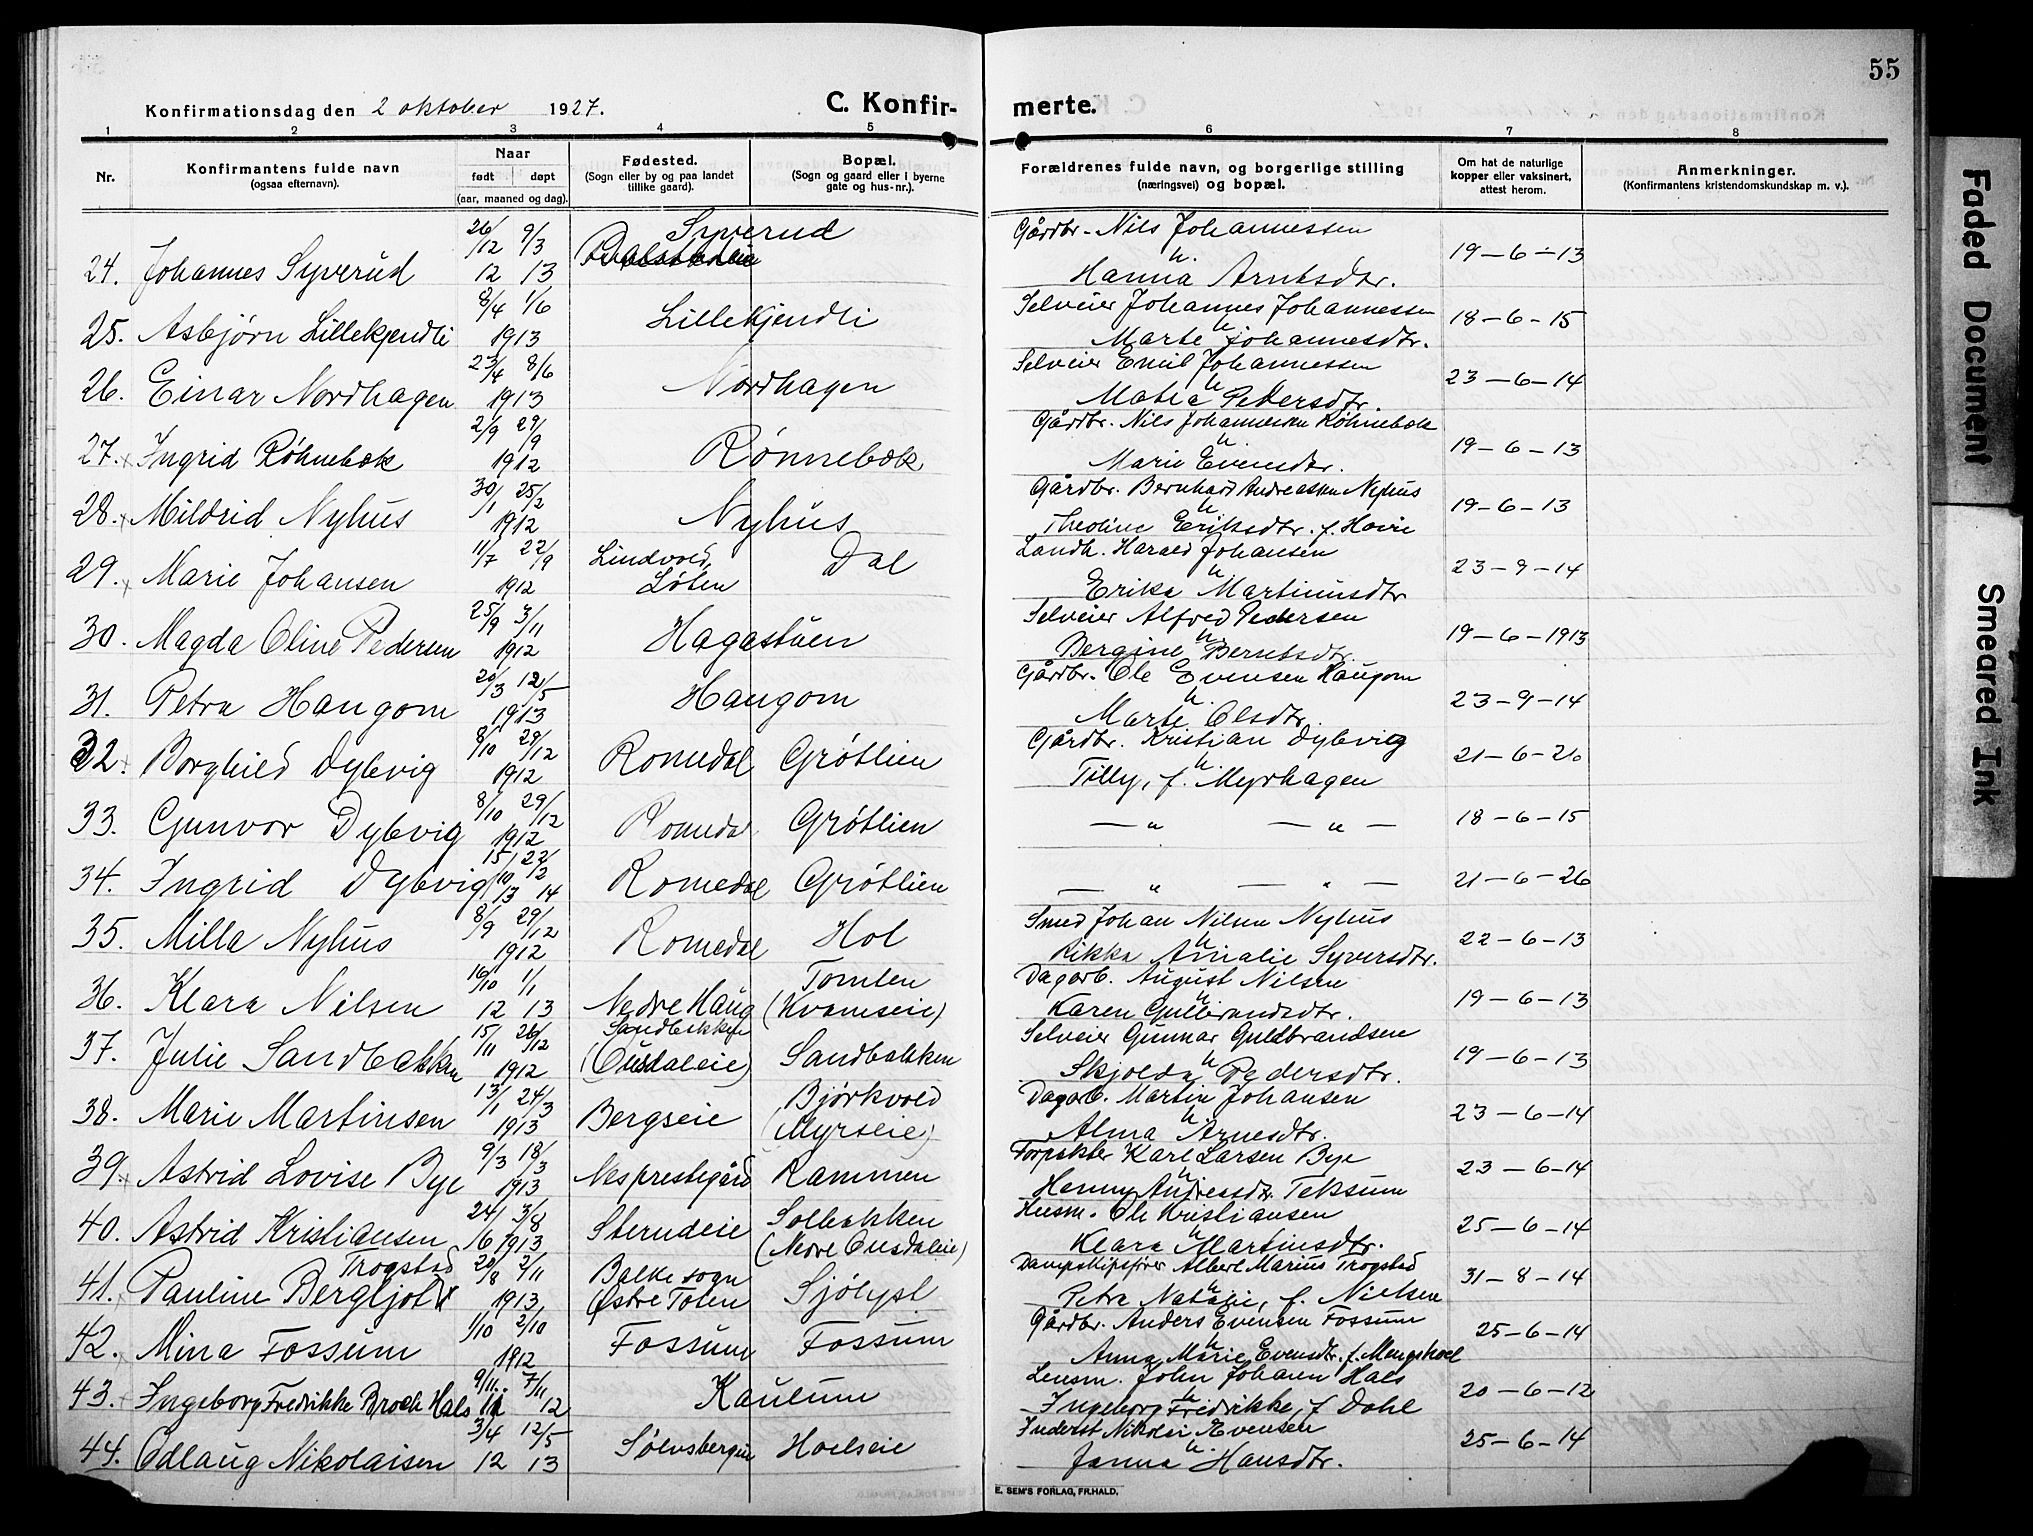 55
Konfirmationsdag den 2 oktober 1927.
C. Konfirmerte.
1 2 3 4 5 6 7 8
Nr.
Konfirmantens fulde navn
(ogsaa efternavn).
Naar
født døpt
(aar, maaned og dag).
Fødested.
(Sogn eller by og paa landet
tillike gaard).
Bopæl.
(Sogn og gaard eller i byerne
gate og hus-nr.).
Forældrenes fulde navn, og borgerlige stilling
(næringsvei) og bopæl.
Om hat de naturlige
kopper eller vaksinert,
attest herom.
Anmerkninger.
(Konfirmantens kristendomskundskap m. v.).
24. Johannes Syverud 26/12 12 9/3 13 Syverud Gårdbr. Nils Johannessen
u. Hanna Arntsdtr. 19-6-13
25. Asbjørn Lillekjendli 8/4 1/6 1913 Lillekjendli Selveier Johannes Johannessen
u. Marte Johannesdtr. 18-6-15
26. Einar Nordhagen 23/4 8/6 1913 Nordhagen Selveier Emil Johannessen
u. Matea Pedersdtr. 23-6-14
27. Ingrid Røhnebæk 2/9 29/9 1912 Rønnebæk Gårdbr. Nils Johannessen Røhnebæk
u. Marie Evensdtr. 19-6-13
28. Mildrid Nyhus 30/1 25/2 1912 Nyhus Gårdbr. Bernhard Andreassen Nyhus
u. Theoline Eriksdtr. f. Hovie 19-6-13
29. Marie Johansen 11/7 22/9 1912 Lindvold, Løten Dal Landh. Harald Johansen
u. Erika Martinusdtr 23-9-14
30. Magda Oline Pedersen 25/9 3/11 1912 Hagastuen Selveier Alfred Pedersen
u. Bergine Berntsdtr. 19-6-1913
31. Petra Haugom 20/3 12/5 1913 Haugom Gårdbr. Ole Evensen Haugom
u. Marte Olsdtr. 23-9-14
32. Borghild Dybvig 8/10 29/12 1912 Romedal Grøtlien Gårdbr. Kristian Dybvig
u. Tilly, f. Myrhagen 21-6-26
33. Gunvor Dybvig 8/10 29/12 1912 Romedal Grøtlien — " — " — 18-6-15
34. Ingrid Dybvig 15/10 13 22/2 14 Romedal Grøtlien — " — " — 21-6-26
35. Milla Nyhus 8/9 29/12 1912 Romedal Hol Smed Johan Nilsen Nyhus
u. Rikka Amalie Syversdtr. 22-6-13
36. Klara Nilsen 16/10 12 1/1 13 Nedre Haug Tomlen (Kvamseie) Dagarb. August Nilsen
u. Karen Gulbrandsdtr. 19-6-13
37. Julie Sandbakken 15/11 26/12 1912 Sandbakken (Ousdaleie) Sandbakken Selveier Gunnar Guldbrandsen
u. Skjolda Pedersdtr. 19-6-13
38. Marie Martinsen 13/1 24/3 1913 Bergseie Bjørkvold (Myrseie) Dagarb. Martin Johansen
u. Alma Arnesdtr. 23-6-14
39. Astrid Lovise Bye 9/3 18/3 1913 Nes prestegård Rammen Forpakter Karl Larsen Bye
u. Henny Andreasdtr. Teksum 23-6-14
40. Astrid Kristiansen 24/6 3/8 1913 Sterudeie Solbakken (Nedre Ousdaleie) Husm. Ole Kristiansen
u. Klara Martinsdtr. 25-6-14
41. Pauline Bergljot Trogstad 20/8 2/11 1913, Balke sogn Østre Toten Sjølyst Dampskipsfører Albert Marius Trogstad
u. Petra Natalie, f. Nielsen 31-8-14
42. Mina Fossum 1/10 2/10 1912 Fossum Fossum Gårdbr. Anders Evensen Fossum
u. Anna Marie Evensdtr. f. Mengshoel 25-6-14
43. Ingeborg Fredrikke Broch Hals 9/11. 11 7/11 12 Kaulum Lensm. John Johann Hals
u. Ingeborg Fredrikke, f. Dahl 20-6-12
44. Odlaug Nikolaisen 3/4 12 12/5 13 Sølvsbergeie Hoelseie Inderst Nikolai Evensen
u. Janna Hansdtr. 25-6-14
E. SEM'S FORLAG, FR.HALD.
Faded Document
Smeared Ink